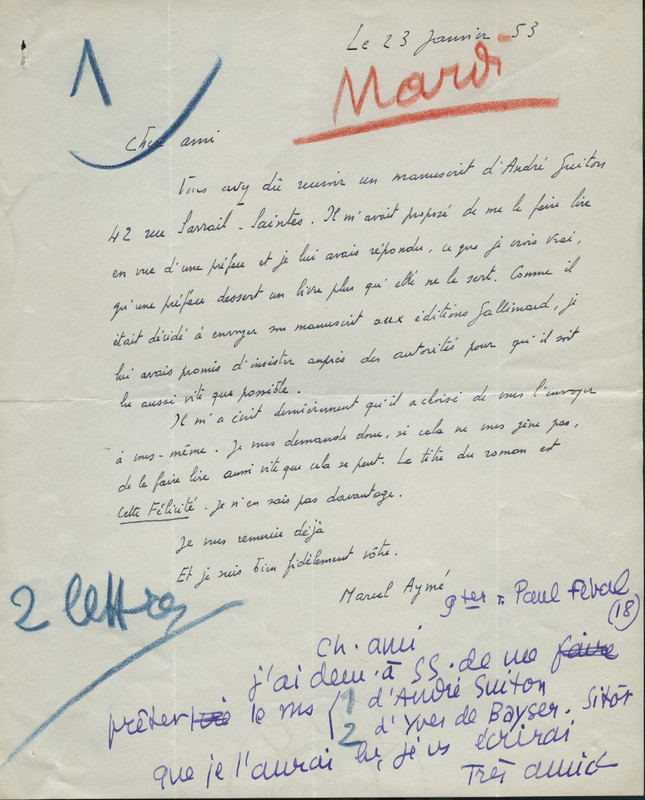 Le 23 Janvier 53
Mardi
1
Cher ami
Vous avez dû recevoir un manuscrit d'André Guiton
42 rue Sarrail - Saintes. Il m'avait proposé de me le faire lire
en vue d'une préface et je lui avais répondu, ce que je crois vrai,
qu'une préface dessert un livre plus qu'elle ne le sert. Comme il
était décidé à envoyer son manuscrit aux éditions Gallimard, je
lui avais promis d'insister auprès des autorités pour qu'il soit
lu aussi vite que possible.
Il m'a écrit dernièrement qu'il a choisi de vous l'envoyer
à vous-même. Je vous demande donc, si cela ne vous gêne pas,
de le faire lire aussi vite que cela se peut. Le titre du roman est
Cette Félicité. Je n'en sais pas davantage.
Je vous remercie déjà
Et je suis bien fidèlement vôtre.
Marcel Aymé
2 lettres
9 ter r. Paul Féval
(18)
Ch. ami
j'ai dem. à SS. de me faire
prêter le ms 1 d'André Guiton
2 d'Yves de Bayser. Sitôt
que je l'aurai lu, je vs écrirai
Très amic